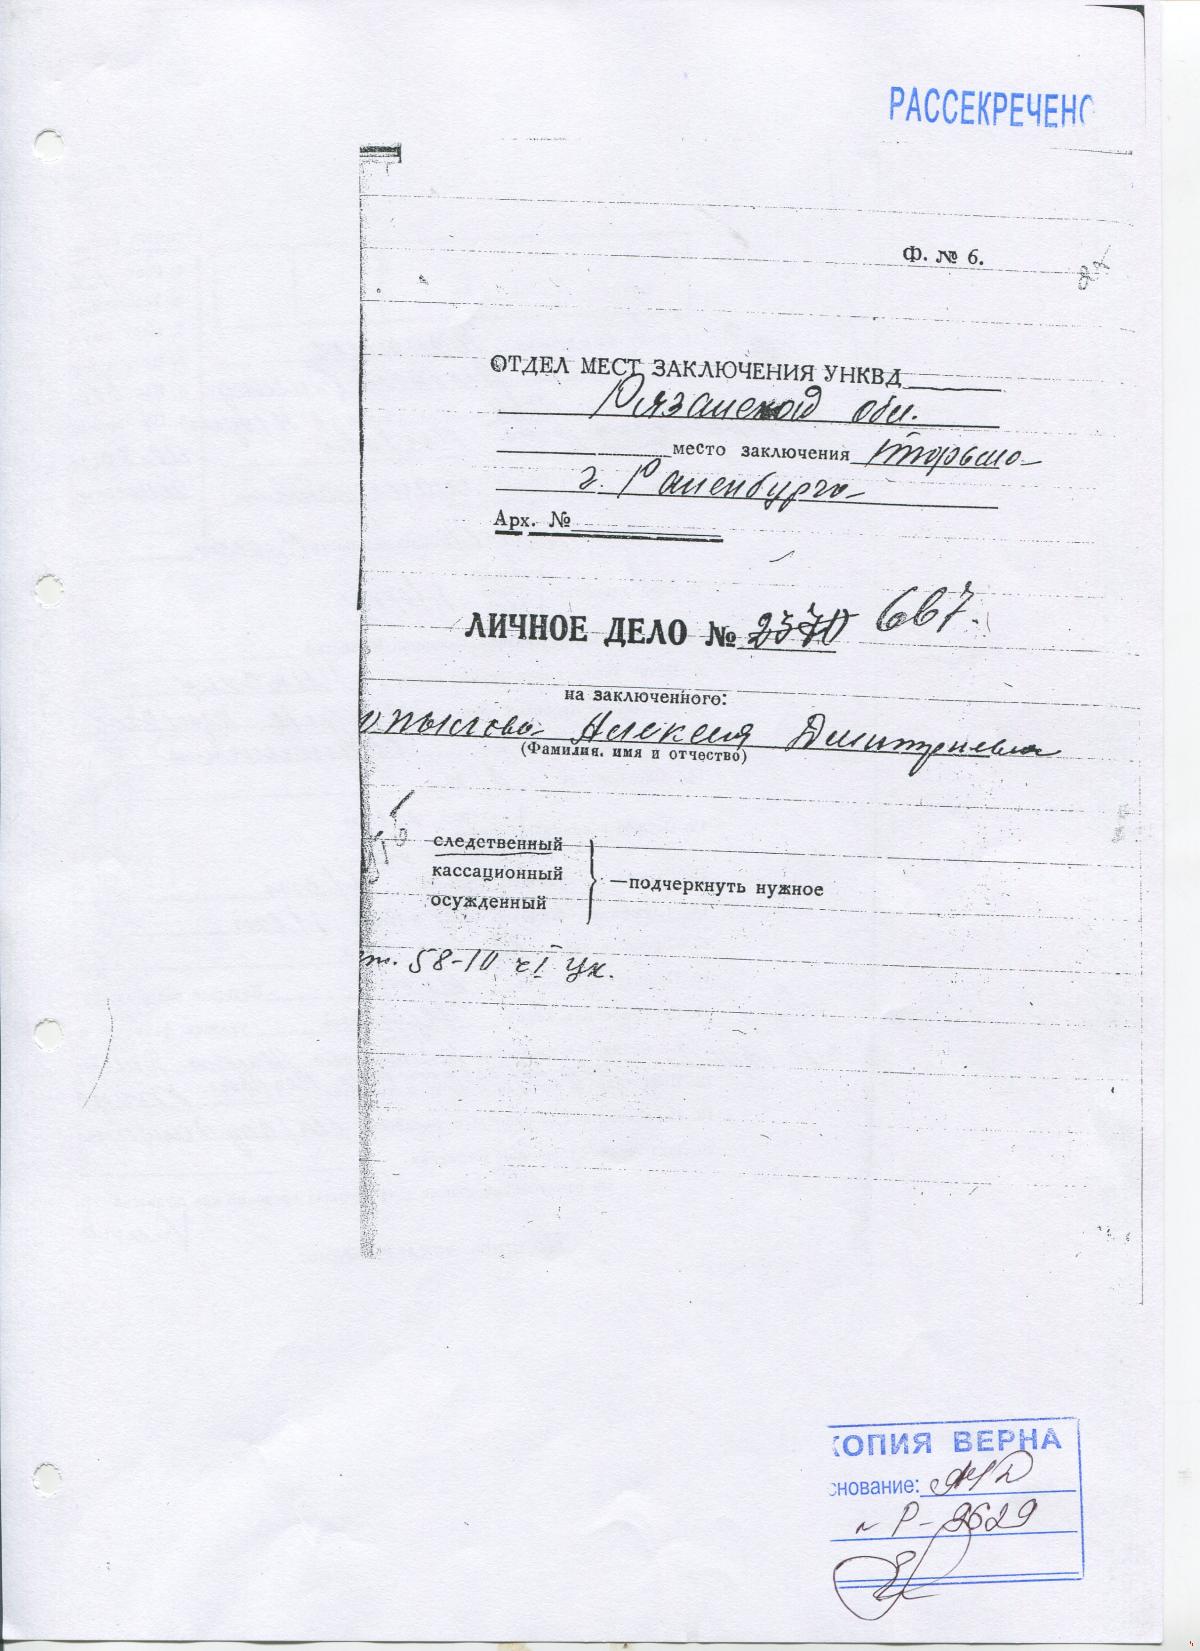 РАССЕКРЕЧЕНО
Ф. № 6.
27
ОТДЕЛ МЕСТ ЗАКЛЮЧЕНИЯ УНКВД
Рязанской обл.
место заключения тюрьма
г. Раненбурга
Арх. №
ЛИЧНОЕ ДЕЛО № 2370 667.
на заключенного:
опылова Алексея Дмитриевича
(Фамилия, имя и отчество)
следственный
кассационный
осужденный
—подчеркнуть нужное
ст. 58-10 ч I УК.
КОПИЯ ВЕРНА
снование: АУД
Р-9629